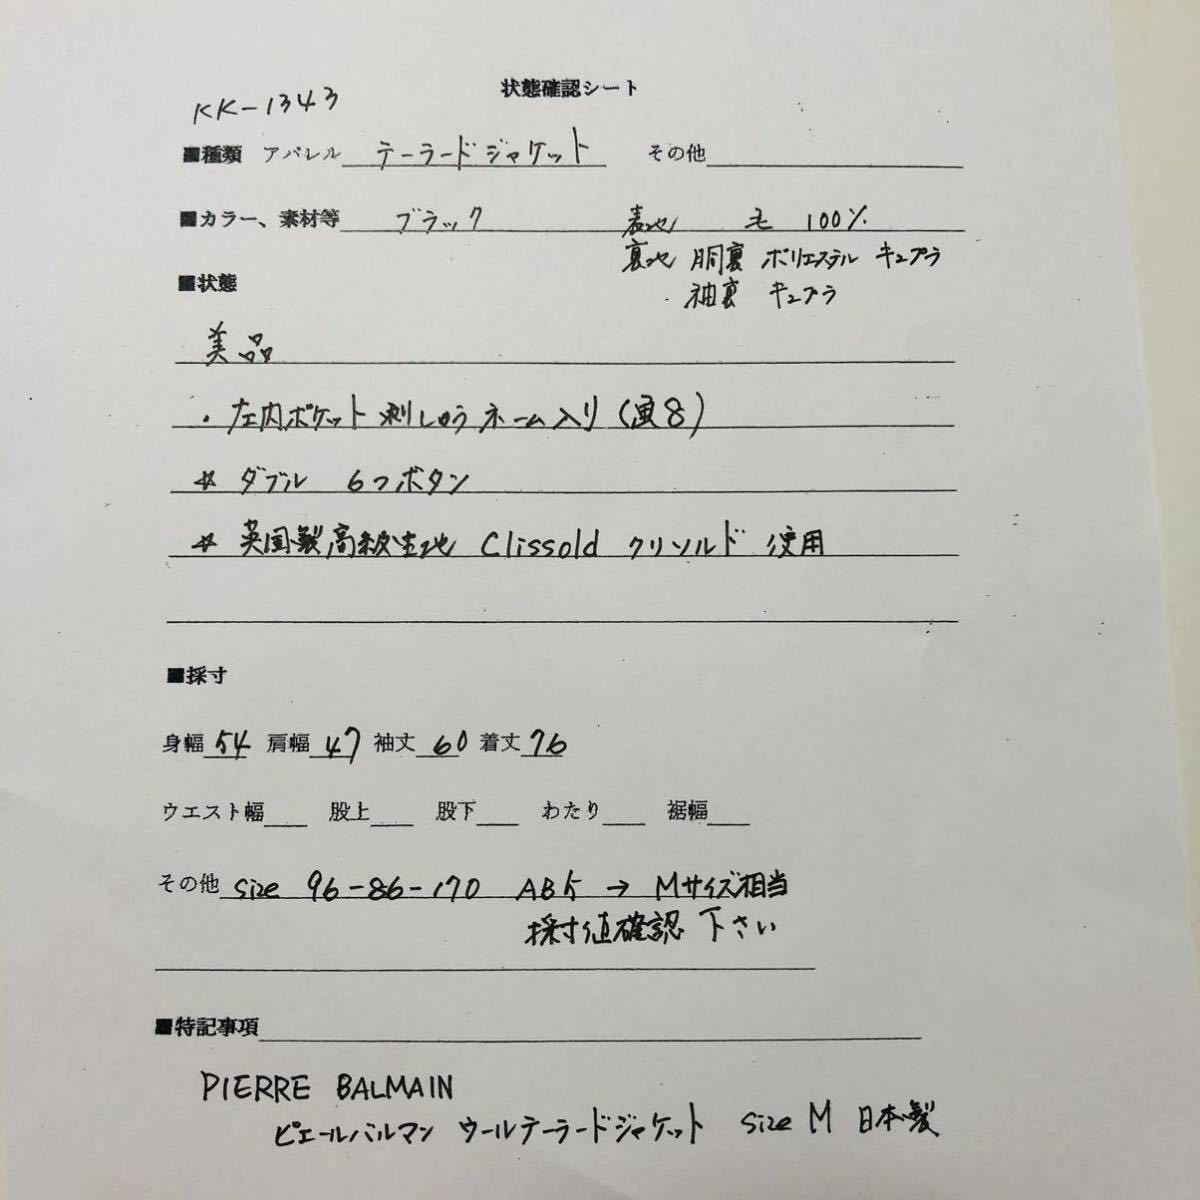 状態確認シート
KK-1343
■種類 アパレル テーラードジャケット その他
■カラー、素材等 ブラック 表地 毛 100%
裏地 胴裏 ポリエステル キュプラ
袖裏 キュプラ
■状態
美品
・左内ポケット 刺しゅうネーム入り(
☆ ダブル 6つボタン
☆ 英国製高級生地 Clissold クリソルド 使用
■採寸
身幅 54 肩幅 47 袖丈 60 着丈 76
ウエスト幅 股上 股下 わたり 裾幅
その他 size 96-86-170 AB5 → Mサイズ相当
採寸値確認 下さい
■特記事項
PIERRE BALMAIN
ピエールバルマン ウールテーラードジャケット size M 日本製